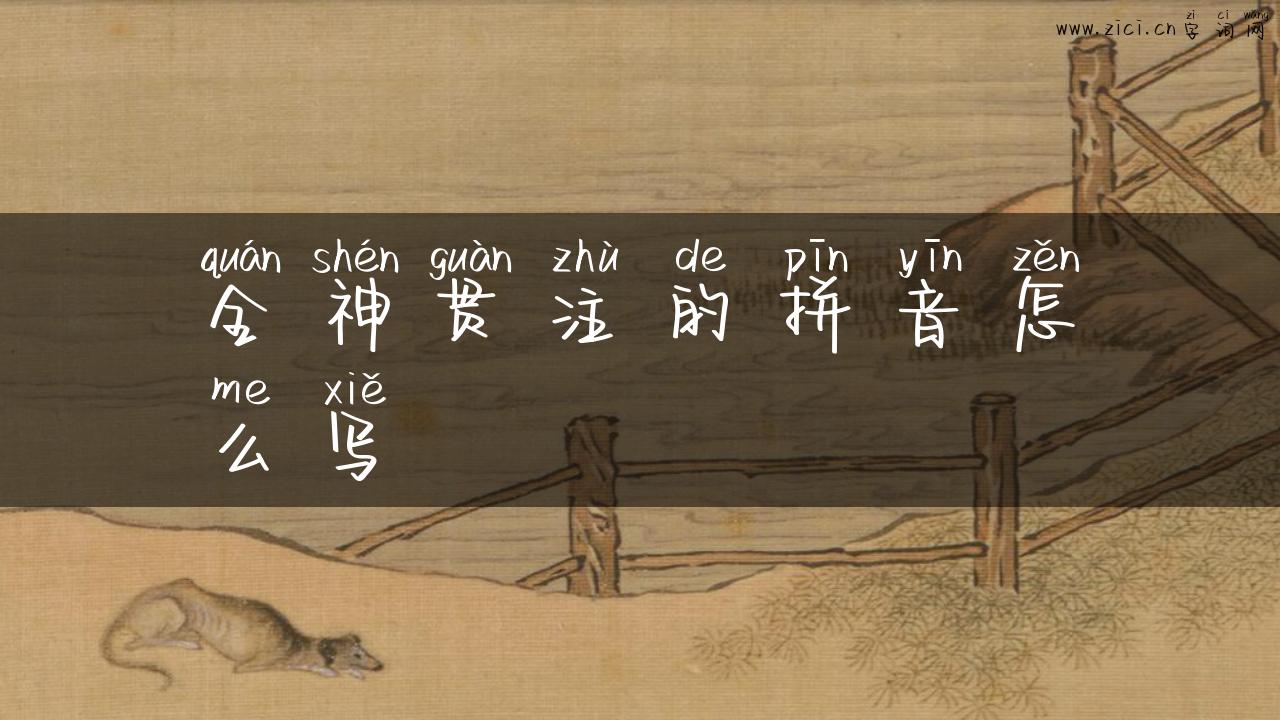 zi ci wang
www.zici.cn 字词网
quán shén guàn zhù de pīn yīn zěn
全神贯注的拼音怎
me xiě
么写